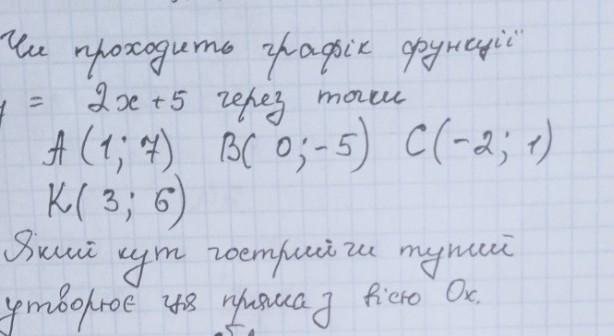 Чи проходить графік функції
y = 2x + 5 через точки
A (1; 7) B( 0; -5) C(-2; 1)
K( 3; 6)
Який кут гострий чи тупий
утворює ця пряма з вісю Ox.